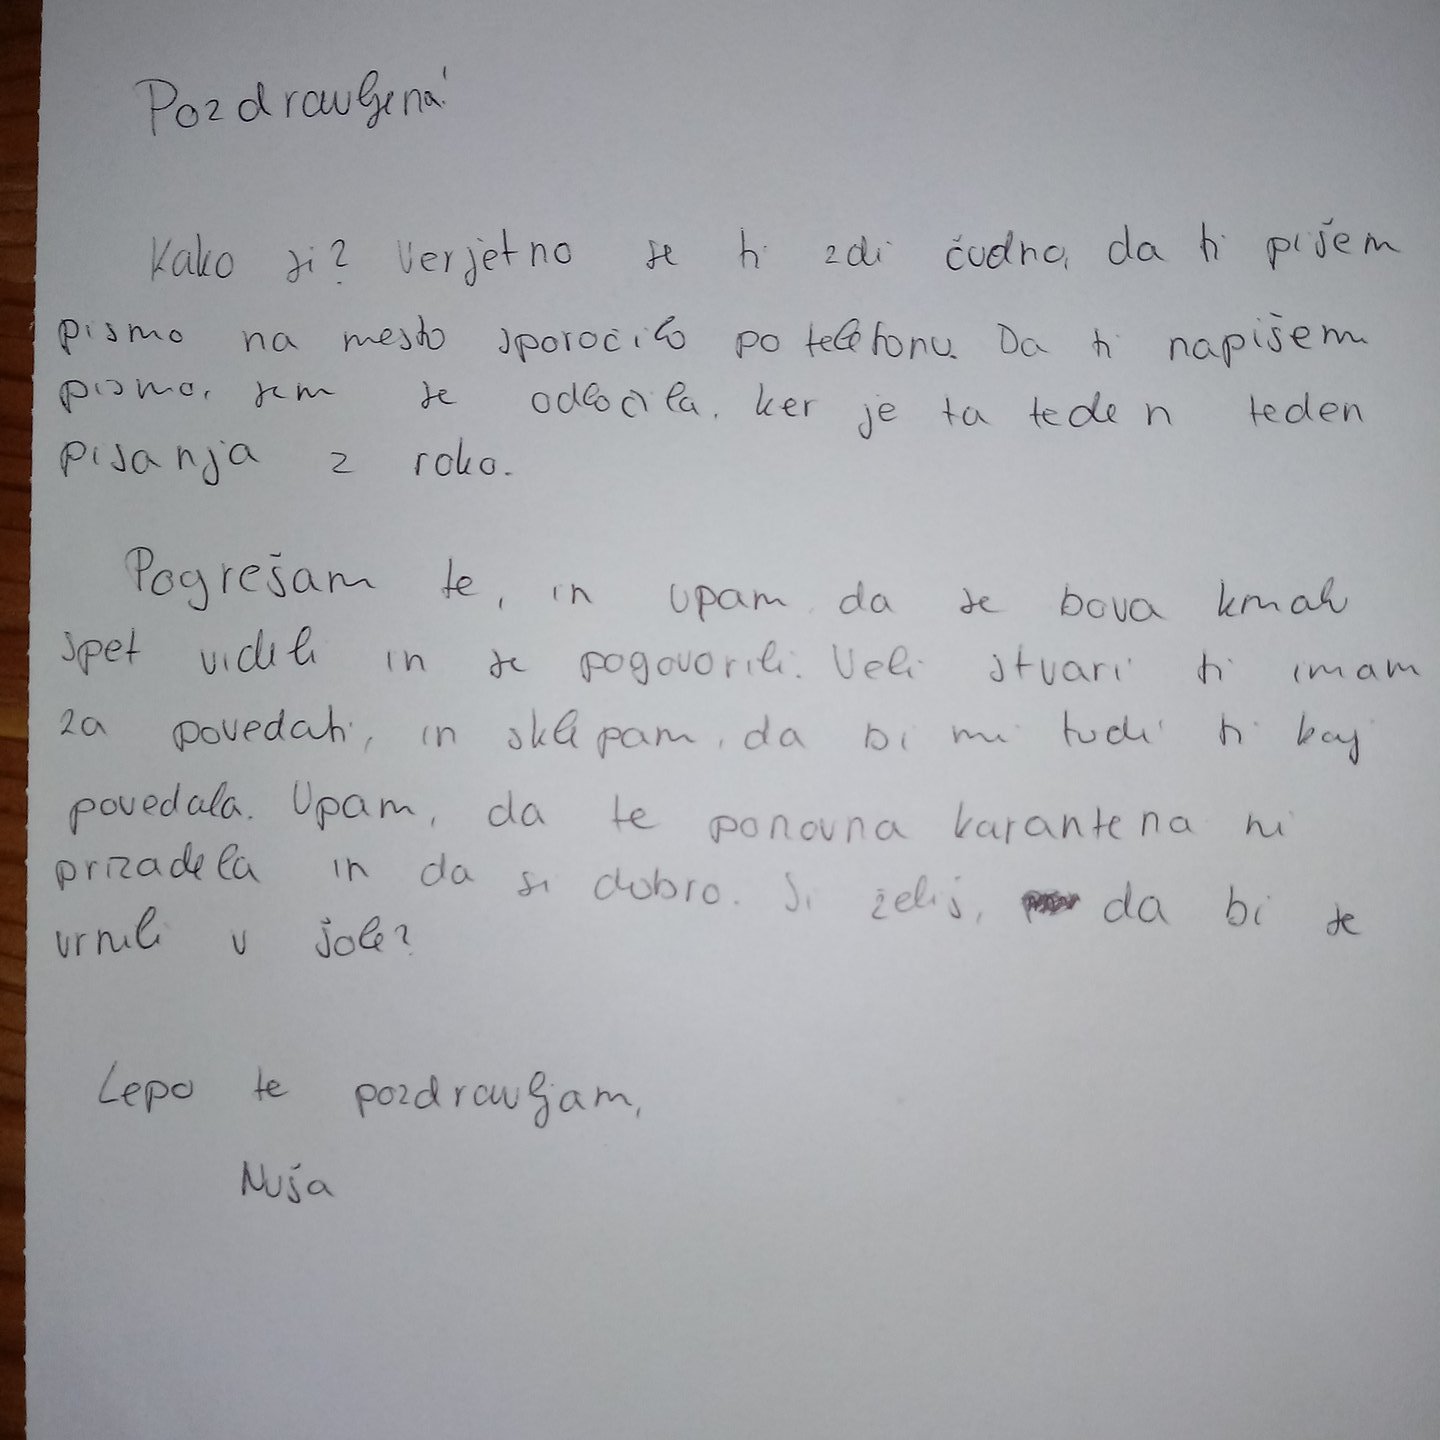 Pozdravljena!
Kako si? Verjetno se ti zdi čudno, da ti pišem
pismo na mesto sporočilo po telefonu. Da ti napišem
pismo, sem se odločila, ker je ta teden teden
pisanja z roko.
Pogrešam te, in upam da se bova kmalu
spet videli in se pogovorili. Veli stvari ti imam
za povedati, in sklepam, da bi mi tudi ti kaj
povedala. Upam, da te ponovna karantena ni
prizadela in da si dobro. Si želiš, da bi se
vrnili v šole?
Lepo te pozdravljam,
Nuša